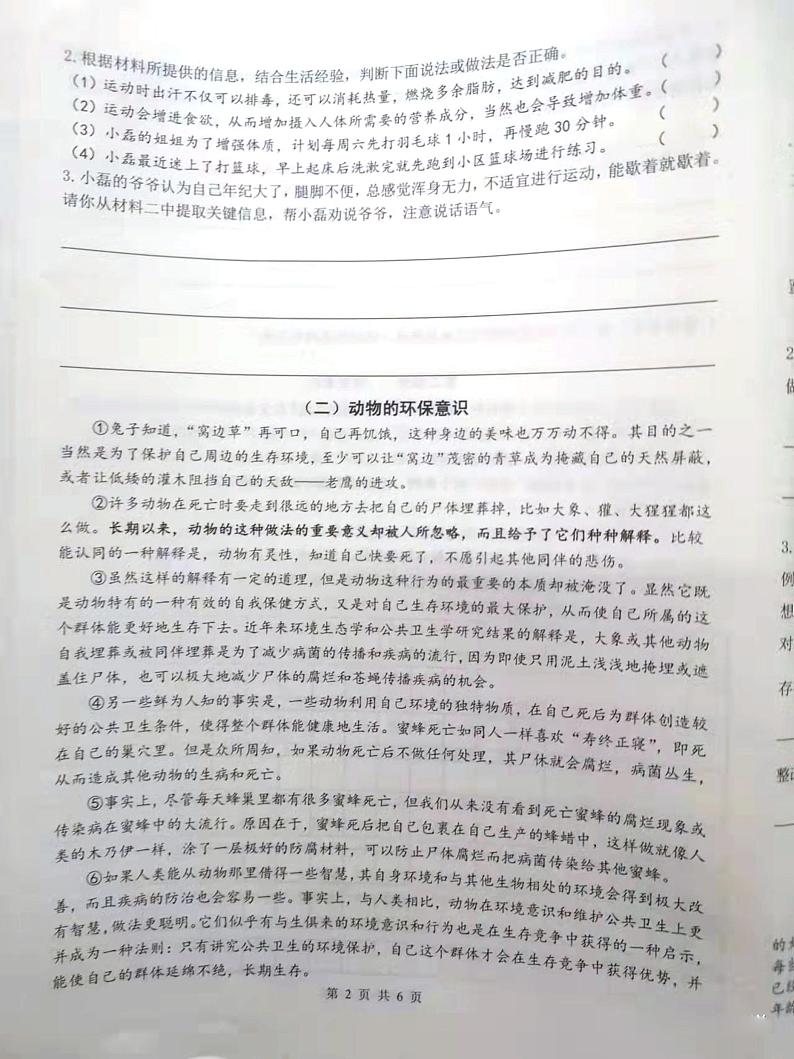 2.根据材料所提供的信息，结合生活经验，判断下面说法或做法是否正确。
（1）运动时出汗不仅可以排毒，还可以消耗热量，燃烧多余脂肪，达到减肥的目的。（ ）
（2）运动会增进食欲，从而增加摄入人体所需要的营养成分，当然也会导致增加体重。（ ）
（3）小磊的姐姐为了增强体质，计划每周六先打羽毛球1小时，再慢跑30分钟。（ ）
（4）小磊最近迷上了打篮球，早上起床后洗漱完就先跑到小区篮球场进行练习。（ ）
3.小磊的爷爷认为自己年纪大了，腿脚不便，总感觉浑身无力，不适宜进行运动，能歇着就歇着。
请你从材料二中提取关键信息，帮小磊劝说爷爷，注意说话语气。
（二）动物的环保意识
①兔子知道，“窝边草”再可口，自己再饥饿，这种身边的美味也万万动不得。其目的之一
当然是为了保护自己周边的生存环境，至少可以让“窝边”茂密的青草成为掩藏自己的天然屏蔽，
或者让低矮的灌木阻挡自己的天敌——老鹰的进攻。
②许多动物在死亡时要走到很远的地方去把自己的尸体埋葬掉，比如大象、獾、大猩猩都这
么做。长期以来，动物的这种做法的重要意义却被人所忽略，而且给予了它们种种解释。比较
能认同的一种解释是，动物有灵性，知道自己快要死了，不愿引起其他同伴的悲伤。
③虽然这样的解释有一定的道理，但是动物这种行为的最重要的本质却被淹没了。显然它既
是动物特有的一种有效的自我保健方式，又是对自己生存环境的最大保护，从而使自己所属的这
个群体能更好地生存下去。近年来环境生态学和公共卫生学研究结果的解释是，大象或其他动物
自我埋葬或被同伴埋葬是为了减少病菌的传播和疾病的流行，因为即使只用泥土浅浅地掩埋或遮
盖住尸体，也可以极大地减少尸体的腐烂和苍蝇传播疾病的机会。
④另一些鲜为人知的事实是，一些动物利用自己环境的独特物质，在自己死后为群体创造较
好的公共卫生条件，使得整个群体能健康地生活。蜜蜂死亡如同人一样喜欢“寿终正寝”，即死
在自己的巢穴里。但是众所周知，如果动物死亡后不做任何处理，其尸休就会腐烂，病菌丛生，
从而造成其他动物的生病和死亡。
⑤事实上，尽管每天蜂巢里都有很多蜜蜂死亡，但我们从来没有看到死亡蜜蜂的腐烂现象或
传染病在蜜蜂中的大流行。原因在于，蜜蜂死后把自己包裹在自己生产的蜂蜡中，这样做就像人
类的木乃伊一样，涂了一层极好的防腐材料，可以防止尸体腐烂而把病菌传染给其他蜜蜂。
⑥如果人类能从动物那里借得一些智慧，其自身环境和与其他生物相处的环境会得到极大改
善，而且疾病的防治也会容易一些。事实上，与人类相比，动物在环境意识和维护公共卫生上更
有智慧，做法更聪明。它们似乎有与生俱来的环境意识和行为也是在生存竞争中获得的一种启示，
并成为一种法则：只有讲究公共卫生的环境保护，自己这个群体才会在生存竞争中获得优势，并
能使自己的群体延绵不绝，长期生存。
第 2 页 共 6 页
2
做
3.
例
想
对
存
整
的
每
已
年龄